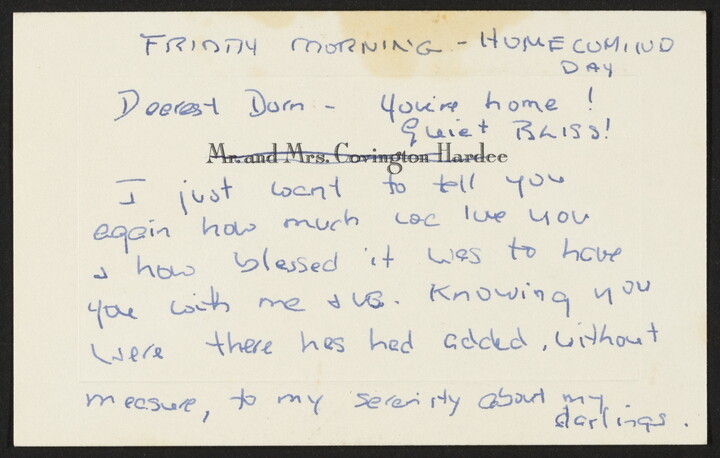 FRIDAY MORNING - HOMECOMING
DAY
Dearest Dorn - You're home!
Quiet BLISS!
Mr. and Mrs. Covington Hardee
I just want to tell you
again how much we love you
& how blessed it was to have
you with me & us. Knowing you
were there has had added, without
measure, to my serenity about my
darlings.